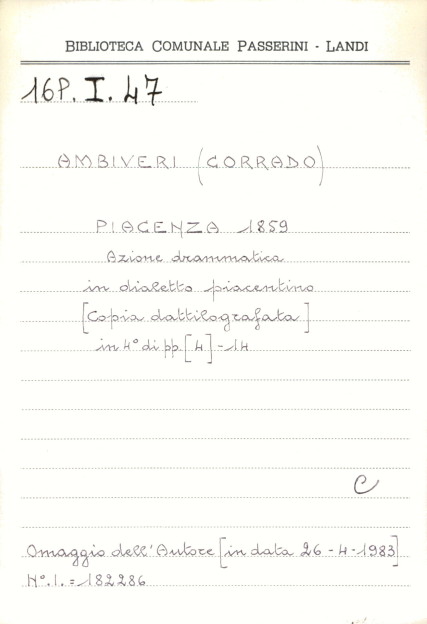 BIBLIOTECA COMUNALE PASSERINI - LANDI
16P. I. 47
AMBIVERI (CORRADO)
PIACENZA 1859
Azione drammatica
in dialetto piacentino
[Copia dattilografata]
in 4° di pp. [4] - 14
C
Omaggio dell'Autore [in data 26 - 4 - 1983]
N°. I. = 182286